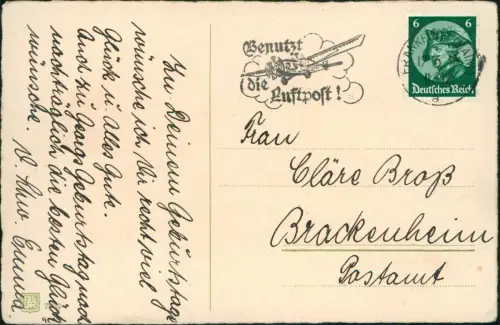 Zu Deinem Geburtstage
wünsche ich Dir recht viel
Glück u. Alles Gute.
Auch zu Georgs Geburtstag noch
nachträglich die besten Glück
wünsche. D. Schw. Emma.
Benutzt
die
Luftpost!
6 6
Deutsches Reich
FRANKFURT
Frau
Cläre Broß
Brackenheim
Postamt